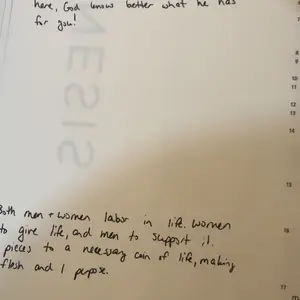 here, God knows better what he has
for you!
NESIS
8
9
10
11
12
13
14
15
16
17
Both men + women labor in life. Women
to give life, and men to support it.
pieces to a necessary coin of life, making
flesh and 1 purpose.